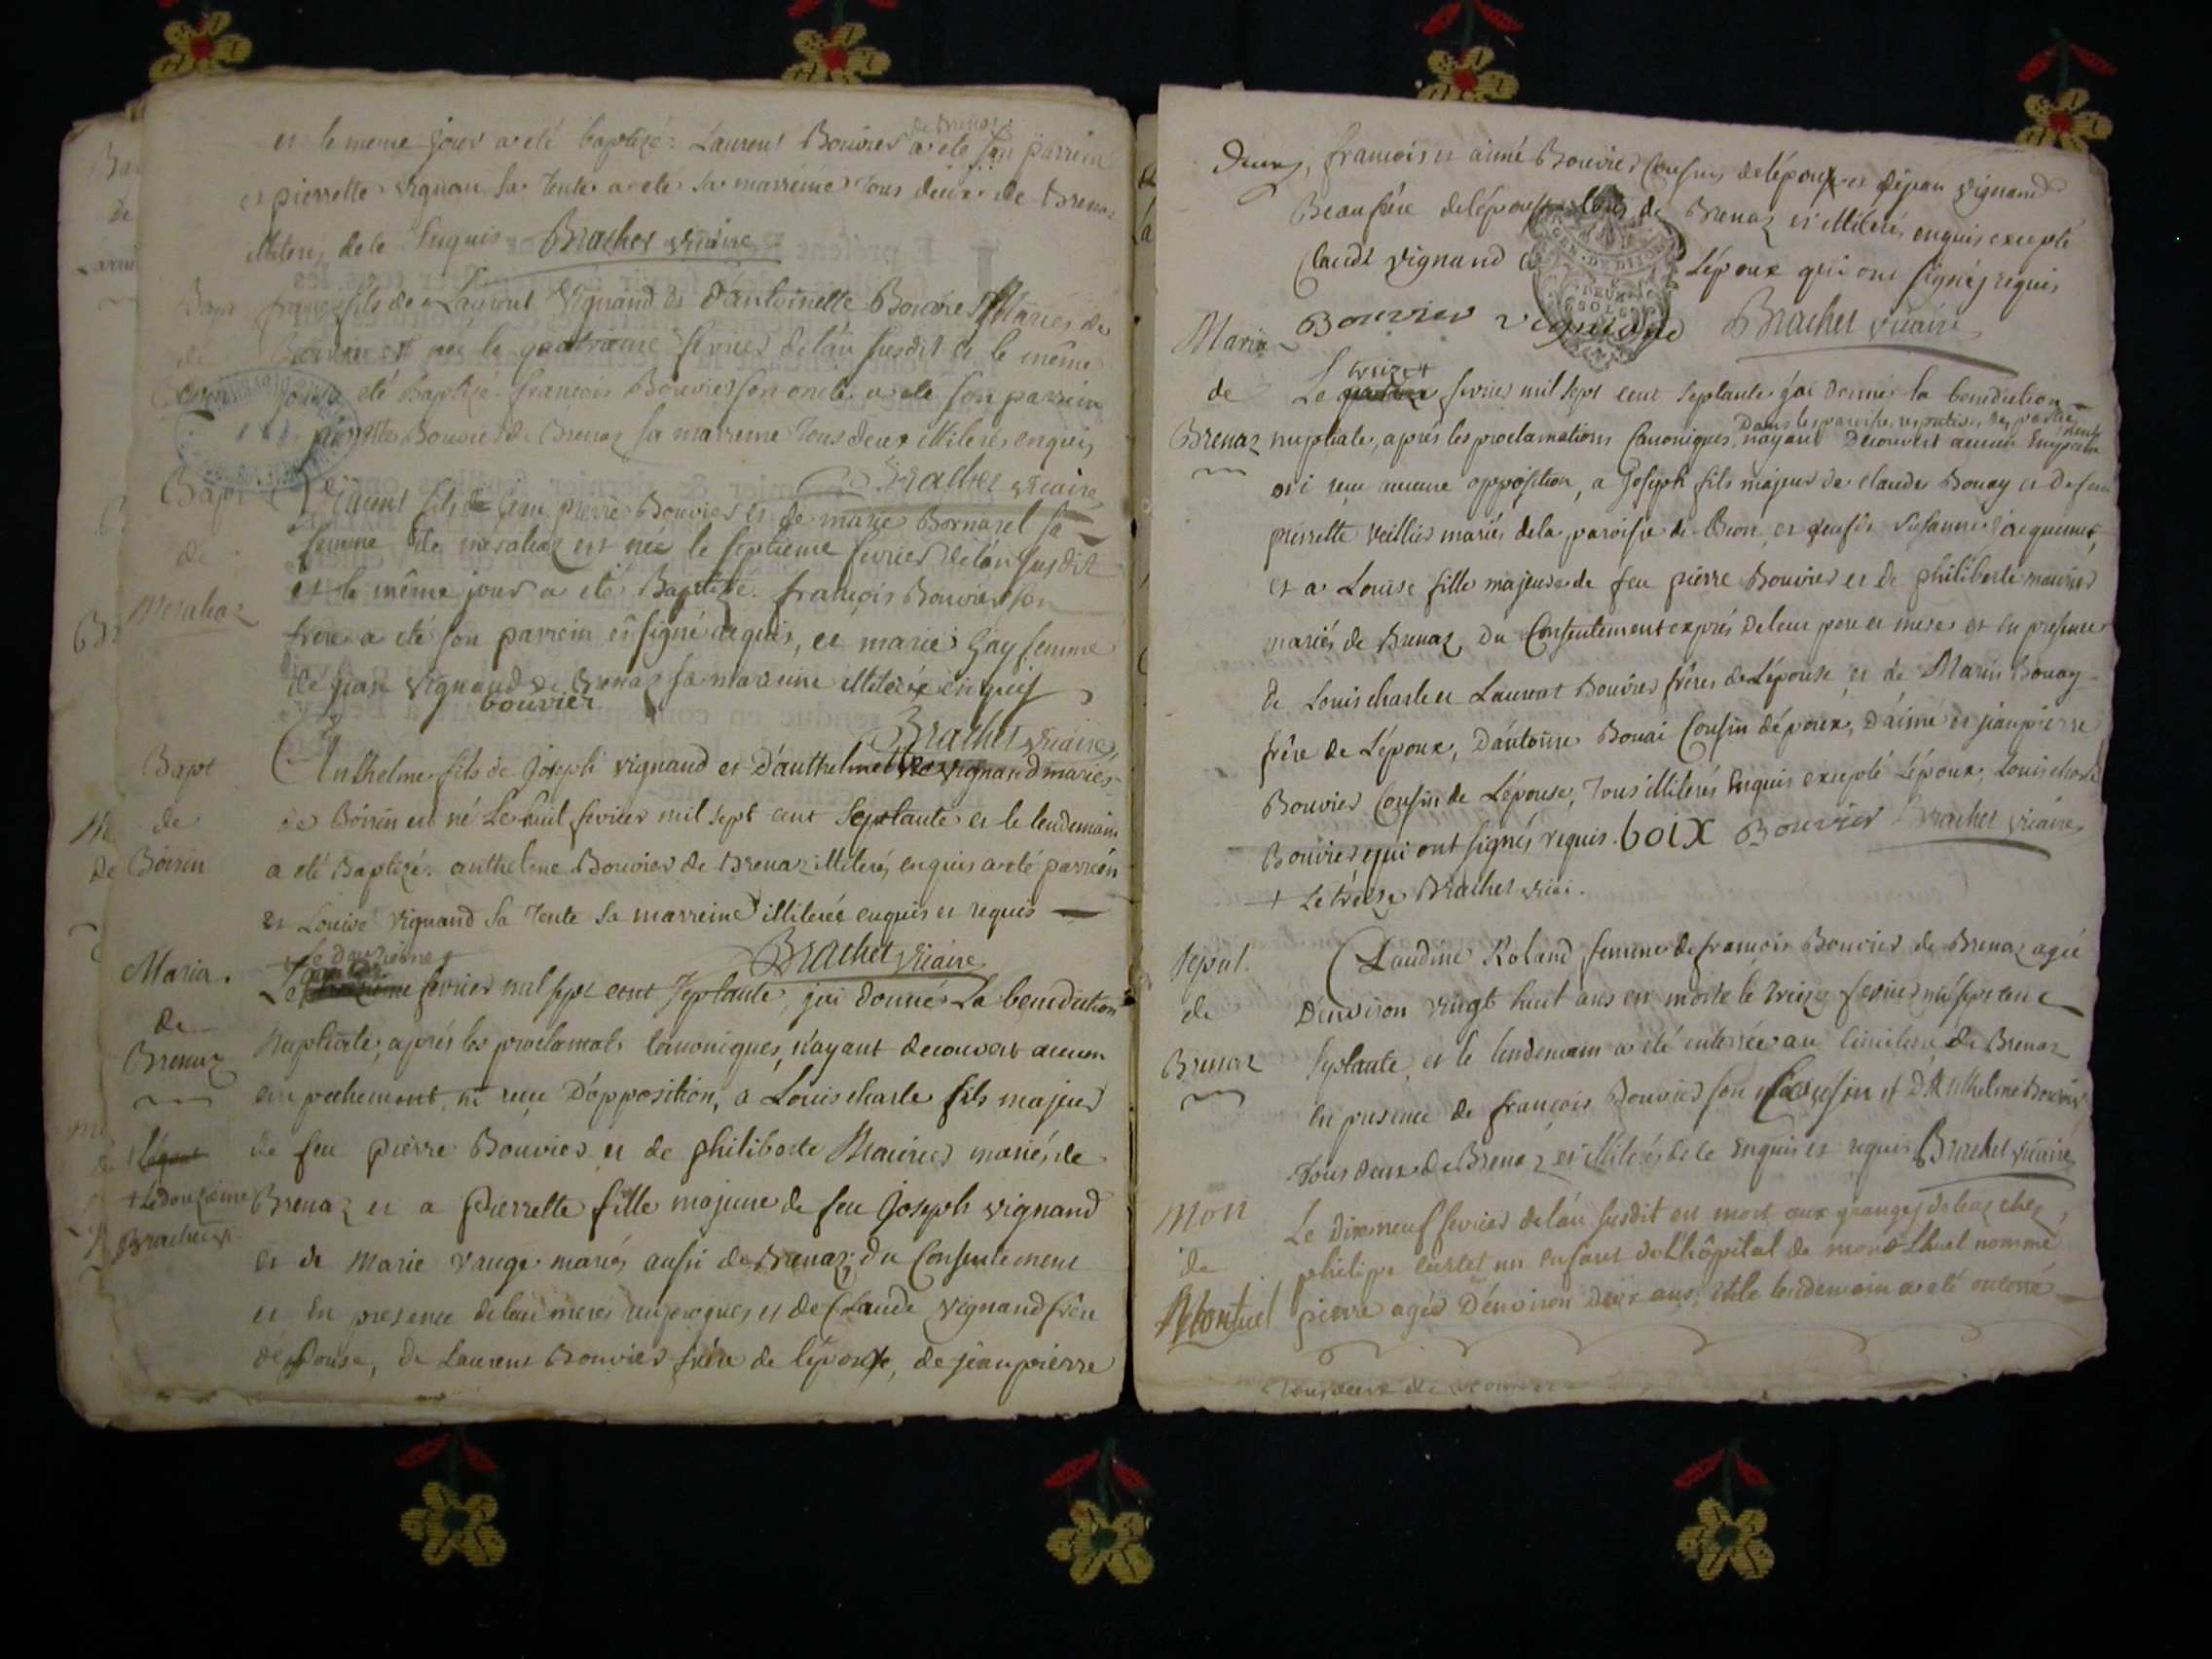 et le meme jour a eté baptizé. Laurent Bouvier de Brenaz a eté son parrein
et pierrette vignan sa tente a eté sa marreine tous deux de Brenaz
illiteres de ce Enquis Brachet vicaire
Bapt
de
françois fils de Laurent Vignand et d'antoinette Bouvier Mariés de
est née le quatrieme fevrier de l'an susdit et le même
jour a eté Baptizé. françois Bouvier son oncle a eté son parrein
Bouvier de Brenaz sa marreine tous deux illiteres enquis
Brachet vicaire
Bapt
de
Meraleaz
Laurent fils de Jean pierre Bouvier et de marie Bornarel sa
femme de meraleaz est née le septieme fevrier de l'an susdit
et le même jour a eté Baptizé. françois Bouvier son
frere a eté son parrein ensigné requis, et marie Gay femme
de jean vignand de Brenaz sa marreine illiterée enquis
bouvier
Brachet vicaire
Bapt
de
Boirin
Anthelme fils de Joseph vignand et d'anthelmette vignand mariés
de Boirin est né Le huit fevrier mil sept cent septante et le lendemain
a eté Baptizé. anthelme Bouvier de Brenaz illiterés enquis a eté parrein
et Louise vignand sa tente sa marreine illiterée enquis et requis
Brachet vicaire
Maria.
de
Brenaz
+ Le douzieme
Brachet v.
Le douzieme +
Le fevrier mil sept cent septante, j'ai donné La benediction
Nuptiale, aprés les proclamat. canoniques, n'ayant decouvert aucun
enpechement, ni reçu D'opposition, a Louis charle fils majeur
de feu pierre Bouvier et de philiberte Maurier mariés de
Brenaz et a Pierrette fille majeure de feu Joseph vignand
et de Marie vauge mariés aussi de Brenaz, du Consentement
et en presence de leur meres et de Claude vignand frere
de l'épouse, de Laurent Bouvier frére de l'époux, de jeanpierre
Deux, francois et aimé Bouvier Cousins de lépoux et de jean vignand
Beaufrére de lépouse tous de Brenaz et illiterés enquis excepté
Claude vignand et Lépoux qui ont signés requis
Bouvier vignand Brachet vicaire
Maria
de
Brenaz
treize +
Le fevrier mil sept cent septante j'ai donné la benediction
Dans les paroisses respectives des parties
nuptiale, aprés les proclamations Canoniques, n'ayant Decouvert aucun Empeche
ment
ni reçu aucune opposition, a Joseph fils majeur de claude Bouay et de feu
pierrette veillier mariés de la paroisse de Brenaz
et a Louise fille majeure de feu pierre Bouvier et de philiberte maurier
mariés de Brenaz, Du Consentement exprés de leur pere et mere et en presence
de Louis charle et Laurent Bouvier fréres de Lépouse et de Marin Bouay
frére de Lépoux, D'antoine Bouai Cousin dépoux, D'aimé et jeanpierre
Bouvier Cousin de Lépouse, Tous illiterés Enquis excepté Lépoux, Louis charle
Bouvier qui ont signés requis. boix Bouvier Brachet vicaire
+ Le treize Brachet vicai.
Sepul.
de
Brenaz
Claudine Roland femme de françois Bouvier de Brenaz agée
D'environ vingt huit ans est morte le treize fevrier mil sept cent
septante, et le lendemain a eté enterrée au Cimitiere de Brenaz
En presence de françois Bouvier son Cousin et D'Anthelme Bouvier
Tous deux de Brenaz et illiterés de ce Enquis et requis Brachet vicaire
Mon
de
Montluel
Le Dixneuf fevrier de l'an susdit est mort aux granges chez
philipe un enfant de L'hôpital de mont Luel nommé
pierre agée D'environ Deux ans, et le lendemain a eté enterré
Tous deux de